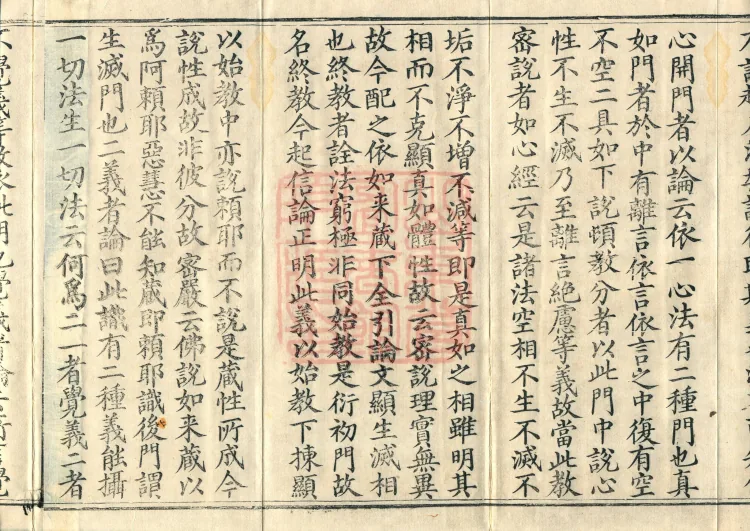 心開門者以論云依一心法有二種門也真
如門者於中有離言依言依言之中復有空
不空二具如下說頓教分者以此門中說心
性不生不滅乃至離言絶慮等義故當此教
密說者如心經云是諸法空相不生不滅不
垢不淨不增不減等即是真如之相雖明其
相而不克顯真如體性故云密說理實無異
故今配之依如来蔵下全引論文顯生滅相
也終教者詮法窮極非同始教是衍初門故
名終教今起信論正明此義以始教下揀顯
以始教中亦說頼耶而不說是蔵性所成今
說性成故非彼分故密嚴云佛說如来蔵以
爲阿頼耶惡慧不能知蔵即頼耶識後門謂
生滅門也二義者論曰此識有二種義能攝
一切法生一切法云何爲二一者覺義二者